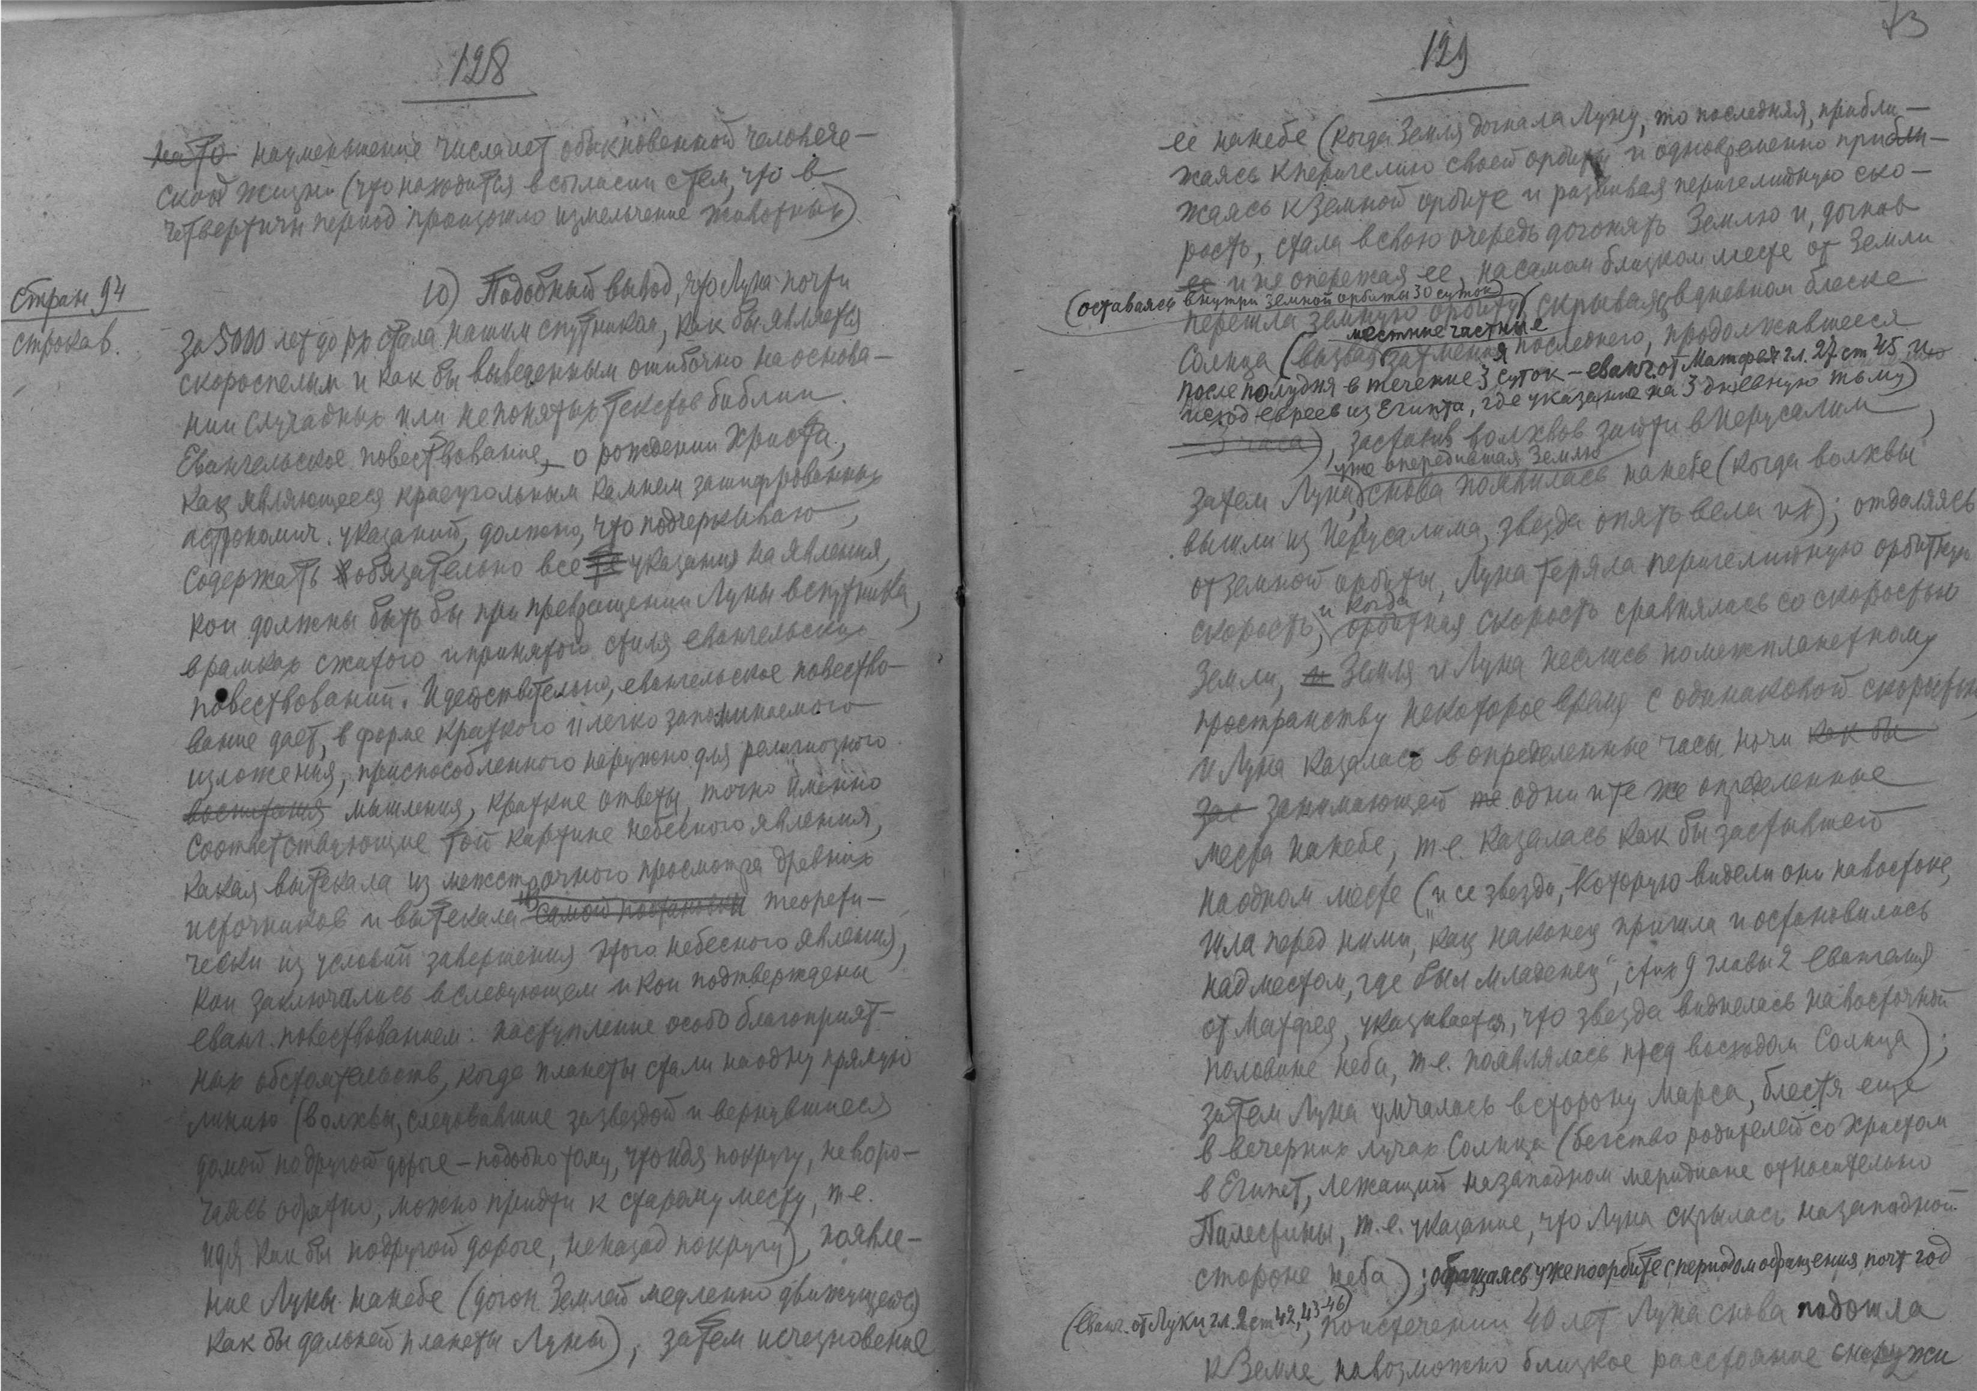 128
на то наименьшение числа лет обыкновенной человече-
ской жизни (что находится в согласии с тем, что в
четвертичн период произошло измельчение животных).
Стран 94
строка 6.
10) Подобный вывод, что Луна почти
за 5000 лет до рх стала нашим спутником, как бы является
скороспелым и как бы выведенным ошибочно на основа-
нии случайных или непонятых текстов библии.
Евангельское повествование, о рождении Христа,
как являющееся краеугольным камнем зашифрованных
астрономич. указаний, должно, что подчеркиваю,
содержать обязательно все те указания на явления,
кои должны быть бы при превращении Луны в спутника,
в рамках сжатого и принятого стиля евангельских
повествований. И действительно, евангельское повество-
вание дает, в форме краткого и легко запоминаемого
изложения, приспособленного наружно для религиозного
воспитания мышления, краткие ответы, точно именно
соответствующие той картине небесного явления,
какая вытекала из межстрочного просмотра древних
источников и вытекала из самой постановки теорети-
чески из условий завершения этого небесного явления,
кои заключались в следующем и кои подтверждены
еванг. повествованием: наступление особо благоприят-
ных обстоятельств, когда планеты стали на одну прямую
линию (волхвы, следовавшие за звездой и вернувшиеся
домой по другой дороге – подобно тому, что идя по кругу, не воро-
чаясь обратно, можно придти к старому месту, т.е.
идя как бы по другой дороге, не назад по кругу), появле-
ние Луны на небе (догон Землей медленно движущейся
как бы дальней планеты Луны), затем исчезновение
73
129
ее на небе (когда Земля догнала Луну, то последняя, прибли-
жаясь к перигелию своей орбиты и одновременно прибли-
жаясь к земной орбите и развивая перигелийную ско-
рость, стала в свою очередь догонять Землю и, догнав
ее и не опережая ее, на самом близком месте от Земли
(оставаясь внутри земной орбиты 30 суток)
перешла земную орбиту, скрываясь в дневном блеске
местные частные
Солнца (вызвав затмения последнего, продолжавшееся
после полудня в течение 3 суток – еванг. от Матфея гл. 27 ст 45, и
исход евреев из Египта, где указание на 3 дневную тьму)
3 часа), заставив волхвов зайти в Иерусалим,
уже опередившая Землю
затем Луна, снова появилась на небе (когда волхвы
вышли из Иерусалима, звезда опять вела их); отдаляясь
от земной орбиты, Луна теряла перигелийную орбитную
и когда
скорость, орбитная скорость сравнялась со скоростью
Земли, и Земля и Луна неслись по межпланетному
пространству некоторое время с одинаковой скоростью,
и Луна казалась в определенные часы ночи как бы
зас занимающей те одни и те же определенные
места на небе, т.е. казалась как бы застывшей
на одном месте („и се звезда, которую видели они на востоке,
шла перед ними, как наконец пришла и остановилась
над местом, где был младенец“, стих 9 главы 2 Евангелия
от Матфея, указывается, что звезда виднелась на восточной
половине неба, т.е. появлялась пред восходом Солнца);
затем Луна умчалась в сторону Марса, блестя еще
в вечерних лучах Солнца (бегство родителей со Христом
в Египет, лежащий на западном меридиане относительно
Палестины, т.е. указание, что Луна скрылась на западной
стороне неба); обращаясь уже по орбите с периодом обращения почт год
(Еванг. от Луки гл. 2 ст 42, 43-46)
, по истечении 40 лет Луна снова подошла
к Земле на возможно близкое расстояние снаружи